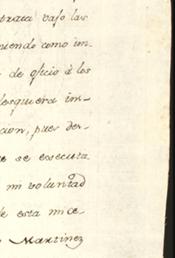 vajo las
uiendo como im-
de oficio â los
lesquiera im-
cion, pues der-
e se executa
mi voluntad
de esta mi ce-
Martinez